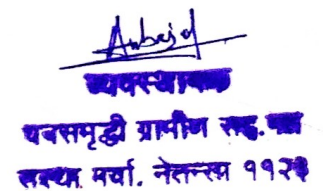 व्यवस्थापक
धनसमृद्धी ग्रामीण सह. पत
संस्था मर्या. ११२३